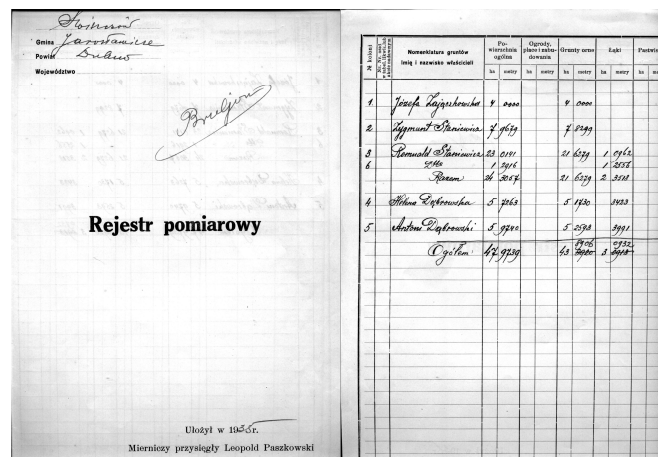 Gmina Jarosławicze
Powiat Dubno
Województwo
Rejestr pomiarowy
Ułożył w 1935r.
Mierniczy przysięgły Leopold Paszkowski
№ kolonii
Nomenklatura gruntów
Imię i nazwisko właścicieli
Powierzchnia ogólna
Ogrody, place i zabudowania
Grunty orne
Łąki
Pastwis
ha metry ha metry ha metry ha metry ha
1. Józefa Zajączkowska 4 0000 4 0000
2 Zygmunt Staniewicz 7 9679 7 8299
3 Romuald Staniewicz 23 0141 21 6279 1 0962
6 1 2916 1 2556
Razem 24 3057 21 6279 2 3518
4 Helena Dąbrowska 5 7263 5 1730 3423
5 Antoni Dąbrowski 5 9740 5 2598 3991
8906 0932
Ogółem 47 9739 43 3